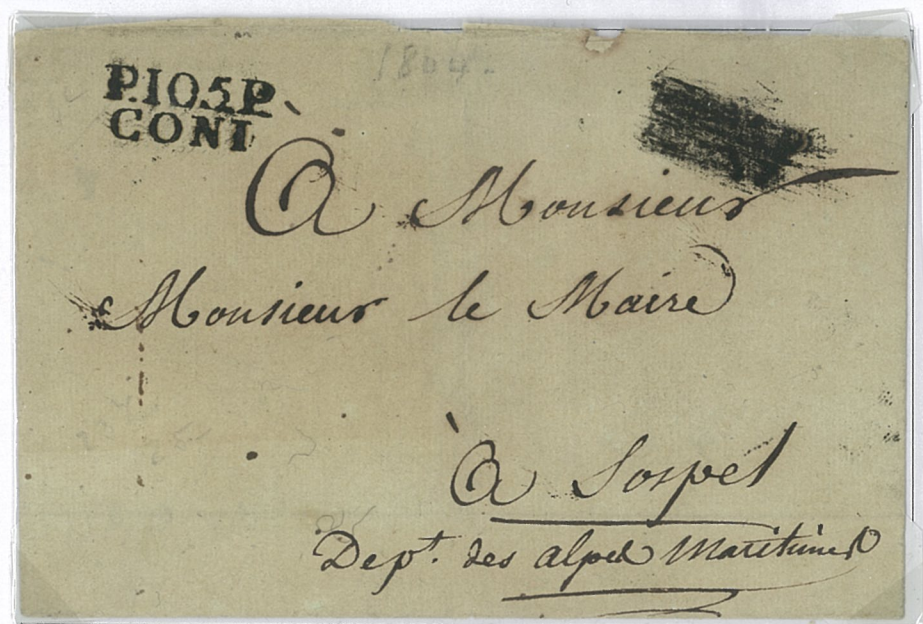 1804.
P.105.P.
CONI
À Monsieur
Monsieur le Maire
À Sospel
Dept. des alpes Maritimes